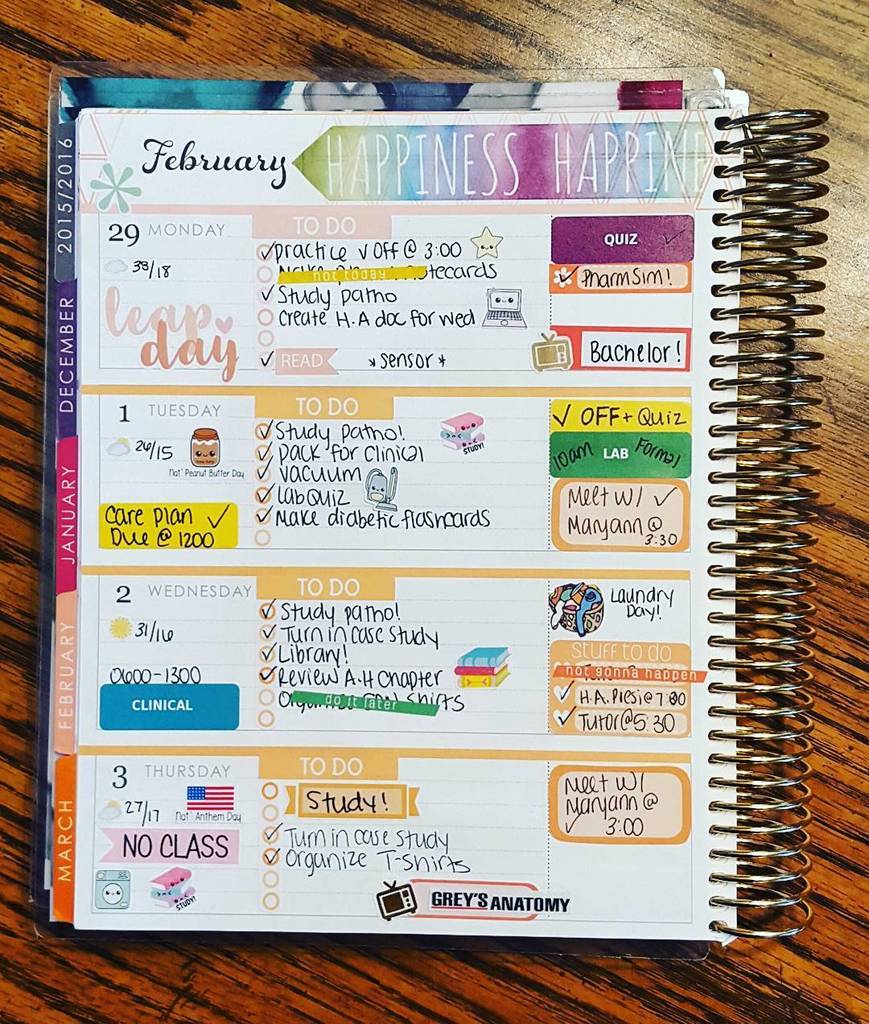 2015/2016
DECEMBER
JANUARY
FEBRUARY
MARCH
February
HAPPINESS HAPPINE
29 MONDAY
33/18
leap
day
TO DO
practice vOff @ 3:00
not today
notecards
Study patho
Create H.A doc for wed
READ
*sensor*
QUIZ
PharmSim!
Bachelor!
1 TUESDAY
26/15
Nat' Peanut Butter Day
Care plan
Due @ 1200
TO DO
Study patho!
pack for clinical
vacuum
lab quiz
Make diabetic flashcards
STUDY!
OFF + Quiz
10am LAB Formal
Meet w/
Maryann @
3:30
2 WEDNESDAY
31/16
0600-1300
CLINICAL
TO DO
Study patho!
Turn in case study
Library!
Review A.H Chapter
do it later
Shirts
Laundry
Day!
Stuff to do
not gonna happen
H.A. Presi@7:30
Tutor@5:30
3 THURSDAY
27/17
Nat' Anthem Day
NO CLASS
STUDY!
TO DO
Study!
Turn in case study
Organize T-shirts
GREY'S ANATOMY
Meet w/
Maryann @
3:00